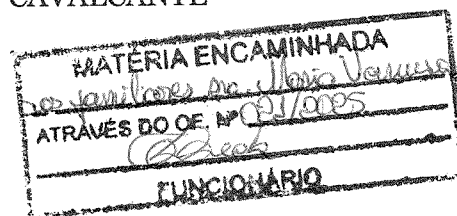 CAVALCANTE
MATÉRIA ENCAMINHADA
aos familiares sra. Maria
ATRAVÉS DO OF. Nº 021/2025
FUNCIONÁRIO